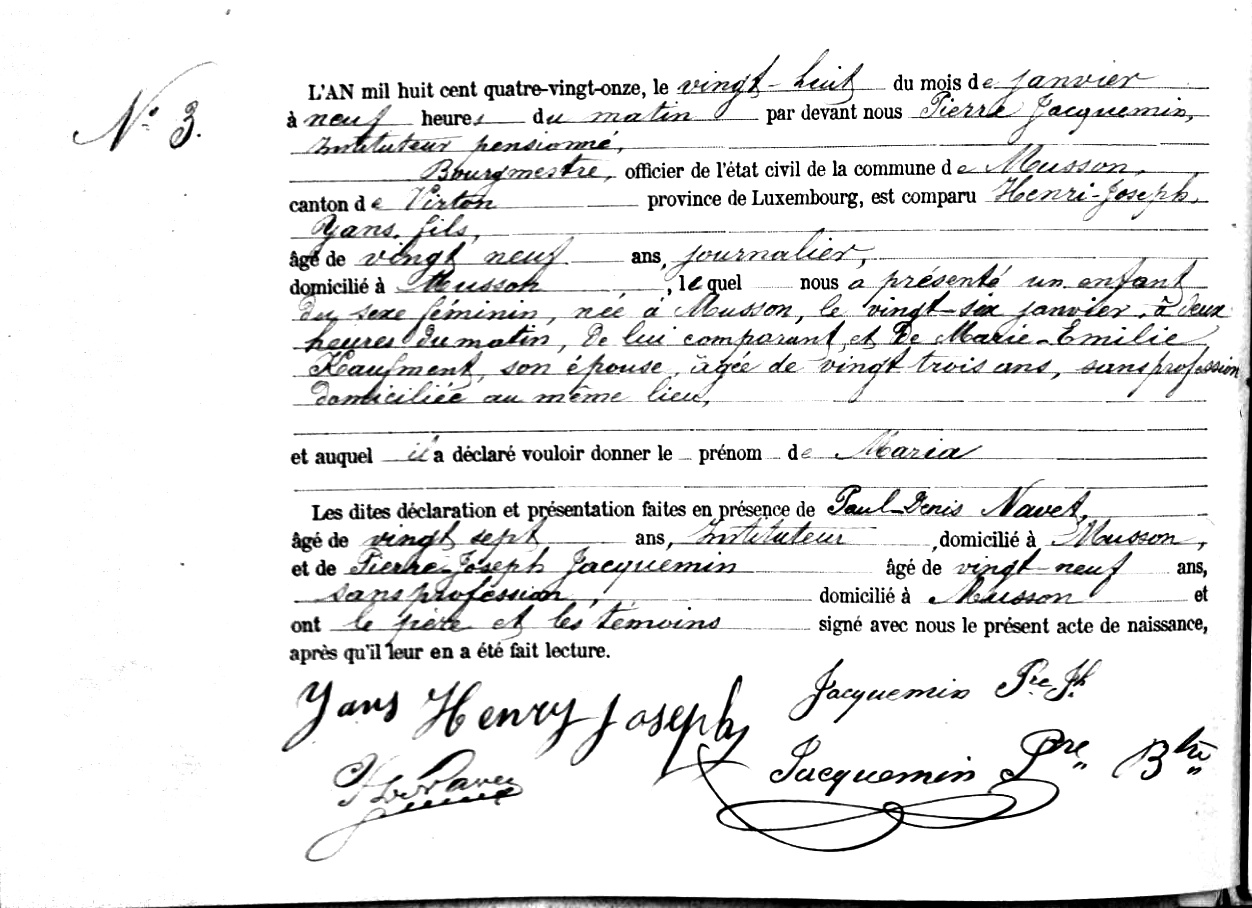 N° 3.
L'AN mil huit cent quatre-vingt-onze, le vingt-huit du mois de janvier
à neuf heures du matin par devant nous Pierre Jacquemin,
Instituteur pensionné,
Bourgmestre, officier de l'état civil de la commune de Musson,
canton de Virton province de Luxembourg, est comparu Henri-Joseph
Yans, fils,
âgé de vingt neuf ans, journalier,
domicilié à Musson, lequel nous a présenté un enfant
du sexe féminin, née à Musson, le vingt-six janvier, à deux
heures du matin, de lui comparant et de Marie-Emilie
Kaufment, son épouse, âgée de vingt trois ans, sans profession
domiciliée au même lieu,
et auquel il a déclaré vouloir donner le prénom de Maria
Les dites déclaration et présentation faites en présence de Paul-Denis Navet,
âgé de vingt sept ans, Instituteur, domicilié à Musson,
et de Pierre-Joseph Jacquemin âgé de vingt-neuf ans,
sans profession, domicilié à Musson et
ont le père et les témoins signé avec nous le présent acte de naissance,
après qu'il leur en a été fait lecture.
Yans Henry Joseph
Jacquemin Pre Jh
Jacquemin Pre Btre